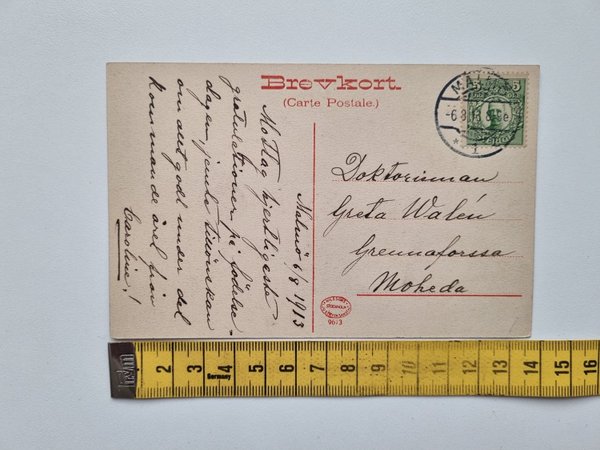 Brevkort.
(Carte Postale.)
MAL
-6.8.13.8
1
5
Malmö 6/8 1913
Mottag hjertligaste
gratulationer på födelse-
dagen jemte tillönskan
om allt godt under det
kommande året från
Caroline!
Doktorinnan
Greta Walén
Grennaforssa
Moheda
9673
2 3 4 5 6 7 8 9 10 11 12 13 14 15 16
Germany